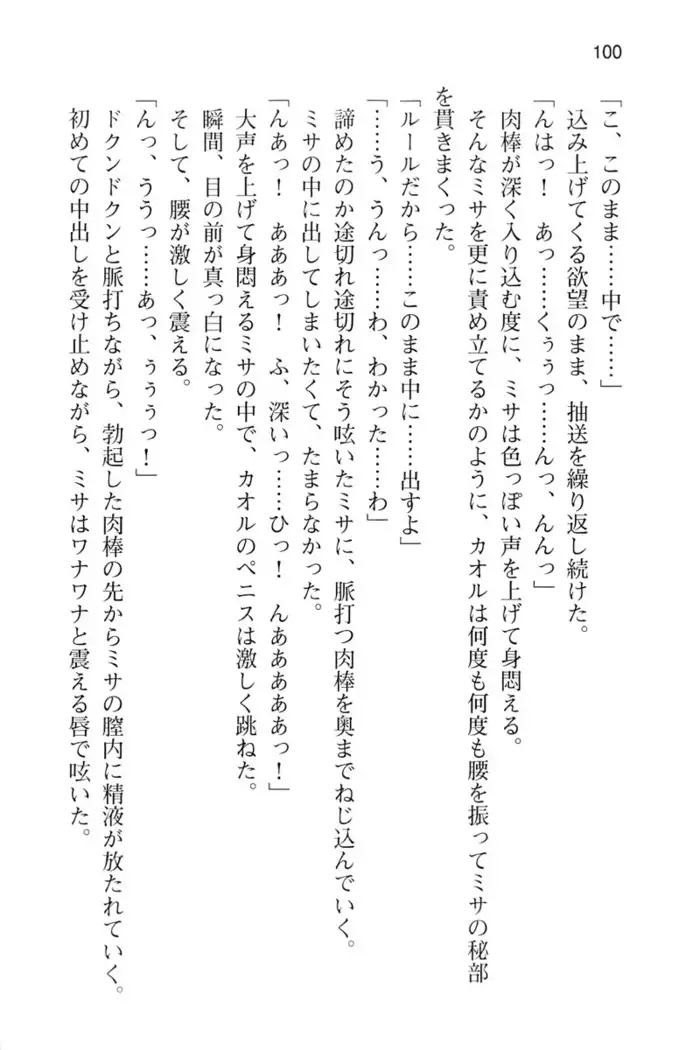 100
「こ、このまま……中で……」
込み上げてくる欲望のまま、抽送を繰り返し続けた。
「んはっ！　あっ……くぅうっ……んっ、んんっ」
肉棒が深く入り込む度に、ミサは色っぽい声を上げて身悶える。
そんなミサを更に責め立てるかのように、カオルは何度も何度も腰を振ってミサの秘部
を貫きまくった。
「ルールだから……このまま中に……出すよ」
「……う、うんっ……わ、わかった……わ」
諦めたのか途切れ途切れにそう呟いたミサに、脈打つ肉棒を奥までねじ込んでいく。
ミサの中に出してしまいたくて、たまらなかった。
「んあっ！　あああっ！　ふ、深いっ……ひっ！　んああああぁっ！」
大声を上げて身悶えるミサの中で、カオルのペニスは激しく跳ねた。
瞬間、目の前が真っ白になった。
そして、腰が激しく震える。
「んっ、ううっ……あっ、うぅぅっ！」
ドクンドクンと脈打ちながら、勃起した肉棒の先からミサの膣内に精液が放たれていく。
初めての中出しを受け止めながら、ミサはワナワナと震える唇で呟いた。